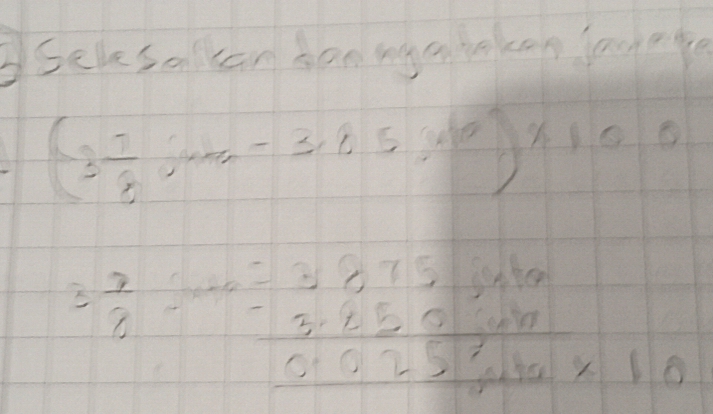 Selesaikan dan nyatakan
(3 7/8 juta - 3.85 juta) × 100
3 7/8 juta = 3 875 juta
- 3.850 juta
0.025 juta × 10